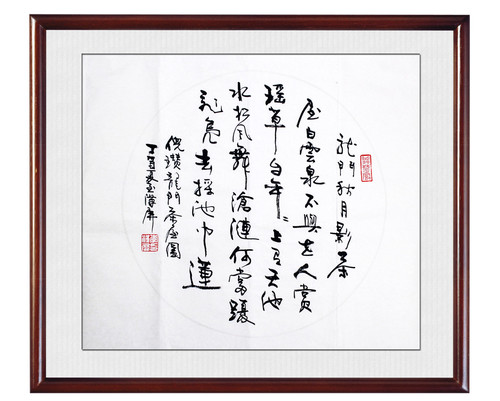 龍門秋月影茶
屋白雲泉不與世人賞
瑤草自年〻上有天池
水松風舞滄漣何當躡
飛鳧去採池中蓮
倪瓚龍門茶屋圖
丁酉夏